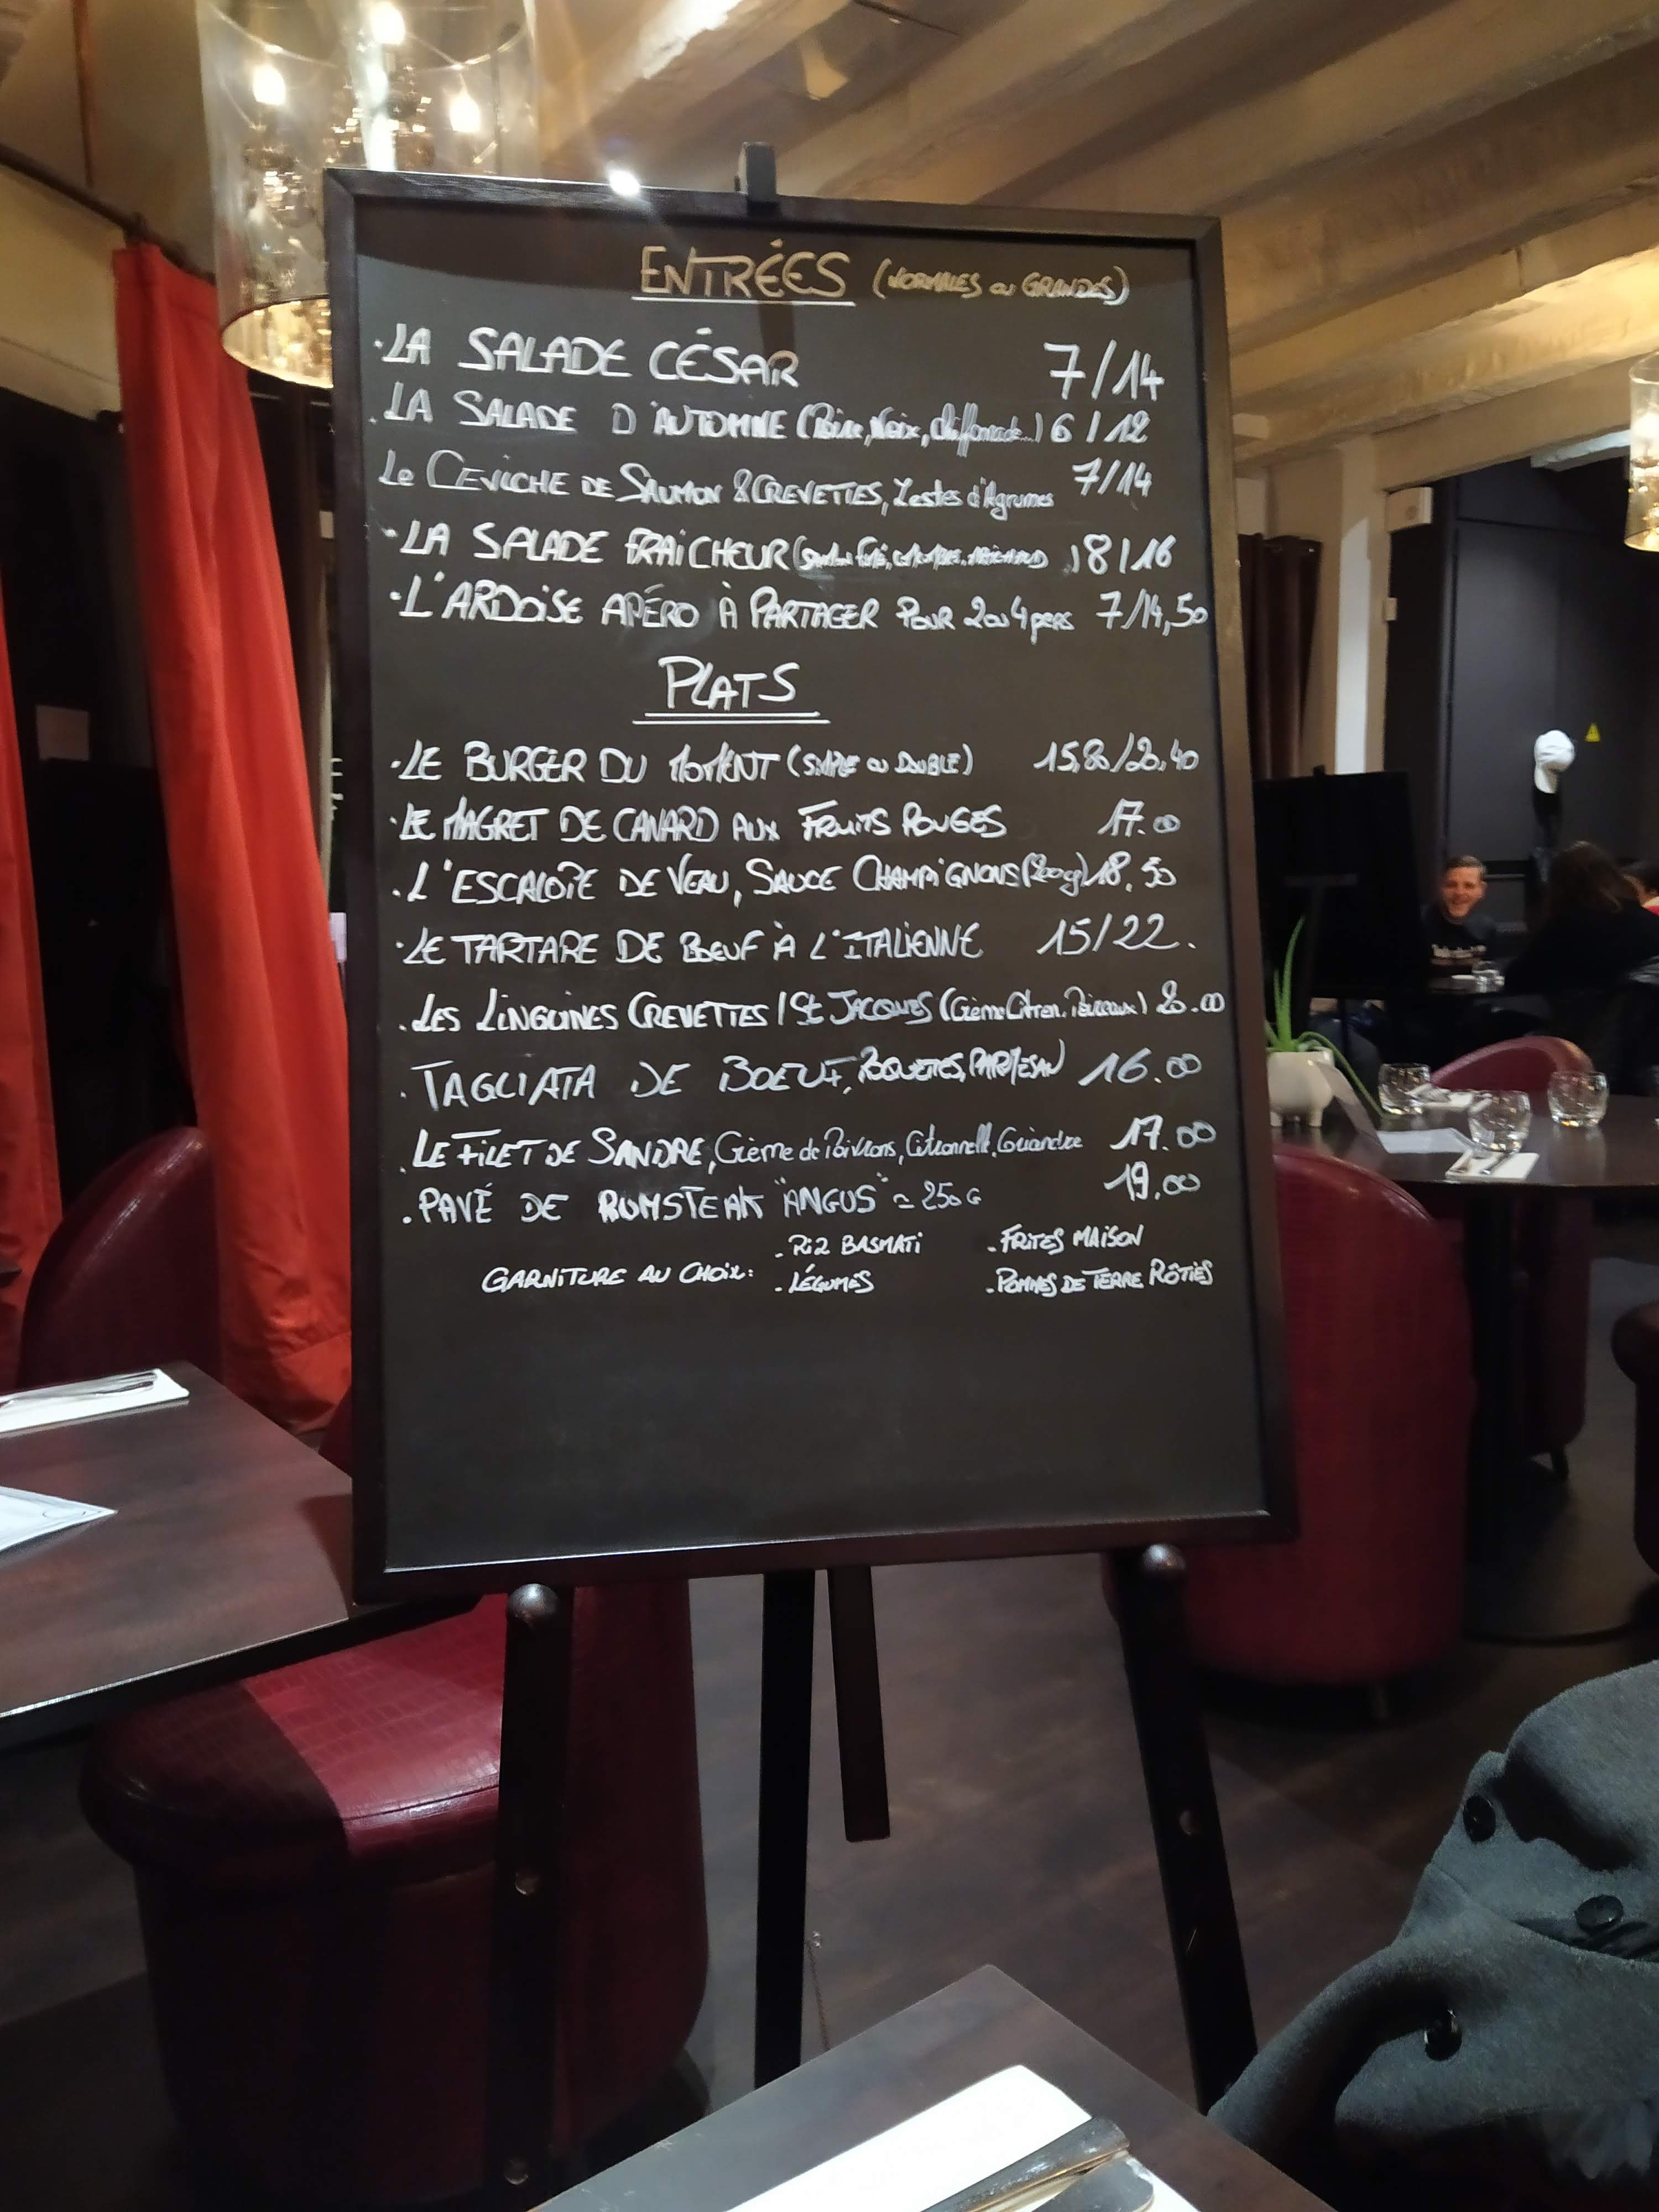 ENTRÉES (NORMALES ou GRANDES)
·LA SALADE CÉSAR 7/14
.LA SALADE D'AUTOMNE (Poire, Noix, chiffonnade...) 6/12
Le CEVICHE DE SAUMON & CREVETTES, Zestes d'Agrumes 7/14
·LA SALADE FRAICHEUR ( ) 8/16
·L'ARDOISE APÉRO À PARTAGER POUR 2 ou 4 pers 7/14,50
PLATS
·LE BURGER DU MOMENT (SIMPLE ou DOUBLE) 15,80/20,40
·LE MAGRET DE CANARD AUX FRUITS ROUGES 17.00
.L'ESCALOPE DE VEAU, SAUCE CHAMPIGNONS (200g) 18,50
·LE TARTARE DE BOEUF À L'ITALIENNE 15/22.
.LES LINGUINES CREVETTES / St JACQUES (Crème Citron, Poireaux) 20.00
.TAGLIATA DE BOEUF, ROQUETTES, PARMESAN 16.00
.LE FILET DE SANDRE, Crème de Poivrons, Citronnelle, Coriandre 17.00
.PAVÉ DE RUMSTEAK "ANGUS" ≃ 250G 19,00
GARNITURE AU CHOIX:
.RIZ BASMATI
.LÉGUMES
.FRITES MAISON
.POMMES DE TERRE RÔTIES